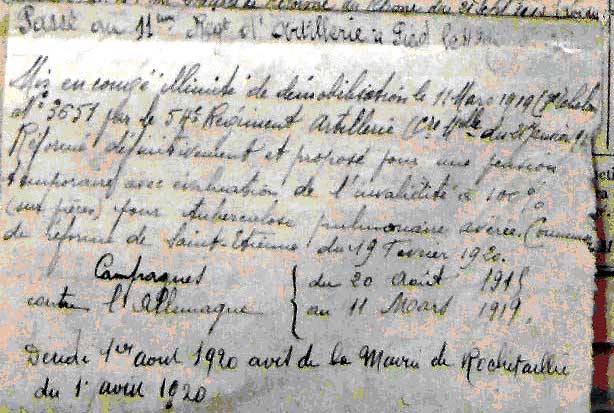 Passé au 11ème Regt d'Artillerie à Pied le
Mis en congé illimité de démobilisation le 11 Mars 1919 (7e échelon
N° 3651 par le 54e Régiment Artillerie
Réformé définitivement et proposé pour une pension
temporaire avec évaluation de l'invalidité à 100%
(sur pièces) pour tuberculose pulmonaire avérée. Comm
de réforme de Saint-Etienne du 19 Février 1920.
Campagnes
contre l'Allemagne
{ du 20 Août 1915
au 11 Mars 1919.
Décédé 1er avril 1920 avis de la Mairie de Rochetaillée
du 1er avril 1920